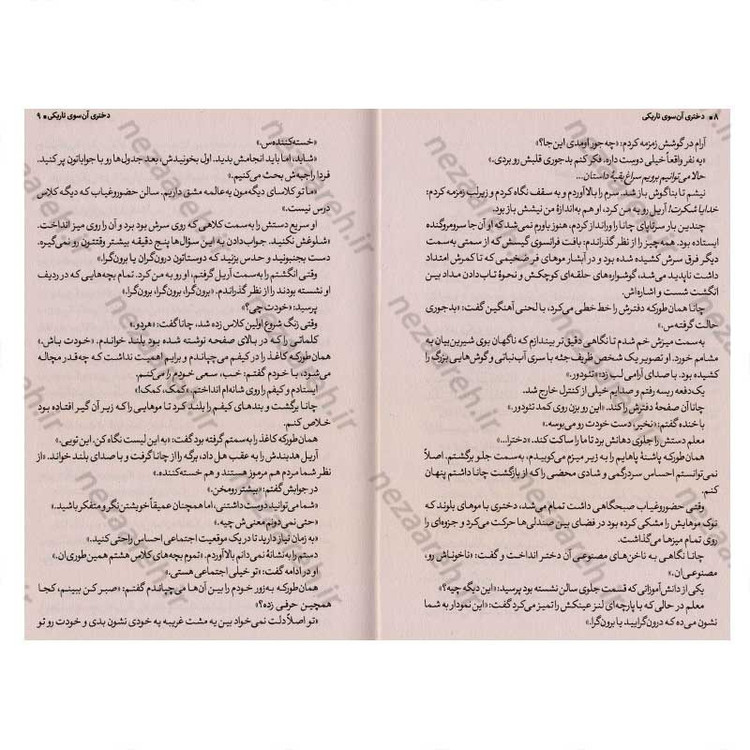 ۸ ■ دختری آن‌سوی تاریکی
آرام در گوشش زمزمه کردم: «چه جور آوردی این‌جا؟»
«یه نفر واقعاً خیلی دوست داره. فکر کنم بدجوری قلبش رو بردی.»
حالا می‌توانیم برویم سراغ بقیهٔ داستان...
نیشم تا بناگوش باز شد. سرم را بالا آوردم و به سقف نگاه کردم و زیرلب زمزمه کردم:
خدایا شکرت! آریل رو به من کرد، او هم به‌اندازهٔ من نیشش باز بود.
چندین بار سرتاپای چانا را ورانداز کردم، هنوز باورم نمی‌شد که او آن جا سرومروگنده
ایستاده بود. همه‌چیز را از نظر گذراندم: بافت فرانسوی گیسش که از سمتی به‌سمت
دیگر فرق سرش کشیده شده بود و در آبشار موهای فر ضخیمی که تا کمرش امتداد
داشت ناپدید می‌شد، گوشواره‌های حلقه‌ای کوچکش و نحوهٔ تاب‌دادن مداد بین
انگشت شست و اشاره‌اش.
چانا همان‌طورکه دفترش را خط‌خطی می‌کرد، با لحنی آهنگین گفت: «بدجوری
حالت گرفته س.»
به‌سمت میزش خم شدم تا نگاهی دقیق‌تر بیندازم که ناگهان بوی شیرین‌بیان به
مشامم خورد. او تصویر یک شخص ظریف‌جثه با سری آب‌نباتی و گوش‌هایی بزرگ را
کشیده بود. با صدای آرامی لب زد: «تئودور.»
یک‌دفعه ریسه رفتم و صدایم خیلی از کنترل خارج شد.
چانا آن صفحهٔ دفترش را کند. «این رو بزن روی کمد تئودور.»
با خنده گفتم: «نخیر، دست خودت رو می‌بوسه.»
معلم دستش را جلوی دهانش برد تا ما را ساکت کند. «دخترا...»
همان‌طورکه پاشنهٔ پاهایم را به زیر میزم می‌کوبیدم، به‌سمت جلو برگشتم. اصلاً
نمی‌توانستم احساس سردرگمی و شادی محضی را که از بازگشت چانا داشتم پنهان
کنم.
وقتی حضوروغیاب صبحگاهی داشت تمام می‌شد، دختری با موهای بلوند که
نوک موهایش را مشکی کرده بود در فضای بین صندلی‌ها حرکت می‌کرد و جزوه‌ای را
روی میزها می‌گذاشت.
چانا نگاهی به ناخن‌های مصنوعی آن دختر انداخت و گفت: «ناخوناش رو،
مصنوعی‌ان.»
یکی از دانش‌آموزانی که قسمت جلوی سالن نشسته بود پرسید: «این دیگه چیه؟»
معلم در حالی که با پارچه‌ای لنز عینکش را تمیز می‌کرد گفت: «این نمودار به شما
نشون می‌ده که درون‌گرایید یا برون‌گرا.»
دختری آن‌سوی تاریکی ■ ۹
«خسته‌کننده‌س.»
«شاید، اما باید انجامش بدید. اول بخونیدش، بعد جدول‌ها رو با جواباتون پر کنید.
فردا راجع‌بهش بحث می‌کنیم.»
«ما تو کلاسای دیگه‌مون یه‌عالمه مشق داریم. سالن حضوروغیاب که دیگه کلاس
درس نیست.»
او سریع دستش را به‌سمت کلاهی که روی سرش بود برد و آن را روی میز انداخت.
«شلوغش نکنید. جواب‌دادن به این سؤال‌ها پنج دقیقه بیشتر وقتتون رو نمی‌گیره.
دست بجنبونید و حدس بزنید که دوستاتون درون‌گران یا برون‌گرا.»
وقتی انگشتم را به‌سمت آریل گرفتم، او رو به من کرد. تمام بچه‌هایی که در ردیف
او نشسته بودند را از نظر گذراندم. «برون‌گرا، برون‌گرا، برون‌گرا.»
پرسید: «خودت چی؟»
وقتی زنگ شروع اولین کلاس زده شد، چانا گفت: «هردو.»
کلماتی را که در بالای صفحه نوشته شده بود بلند خواندم. «خودت باش.»
همان‌طورکه کاغذ را در کیفم می‌چپاندم و برایم اهمیت نداشت که چه‌قدر مچاله
می‌شود، با خودم گفتم: خب، سعی خودم رو می‌کنم.
ایستادم و کیفم را روی شانه‌ام انداختم. «کمک، کمک!»
چانا برگشت و بندهای کیفم را بلند کرد تا موهایی را که زیر آن گیر افتاده بود
خلاص کنم.
همان‌طورکه کاغذ را به‌سمتم گرفته بود گفت: «به این لیست نگاه کن. این تویی.»
آریل هدبندش را به عقب هل داد، برگه را از چانا گرفت و با صدای بلند خواند. «از
نظر شما مردم هم مرموز هستند و هم خسته‌کننده.»
در جوابش گفتم: «بیشتر رومخن.»
«شما می‌توانید دوست داشتنی، اما همچنان عمیقاً خویشتن‌نگر و متفکر باشید.»
«حتی نمی‌دونم معنی‌ش چیه.»
«به زمان نیاز دارید تا در یک موقعیت اجتماعی احساس راحتی کنید.»
دستم را به‌نشانهٔ نمی‌دانم بالا آوردم. «تموم بچه‌های کلاس هشتم همین طوری‌ان.»
او در ادامه گفت: «تو خیلی اجتماعی هستی.»
همان‌طورکه به‌زور خودم را بین آن‌ها می‌چپاندم گفتم: «صبر کن ببینم، کجا
همچین حرفی زده؟»
«تو اصلاً دلت نمی‌خواد بین یه مشت غریبه یه خودی نشون بدی و خودت رو تو
nezaareh.ir